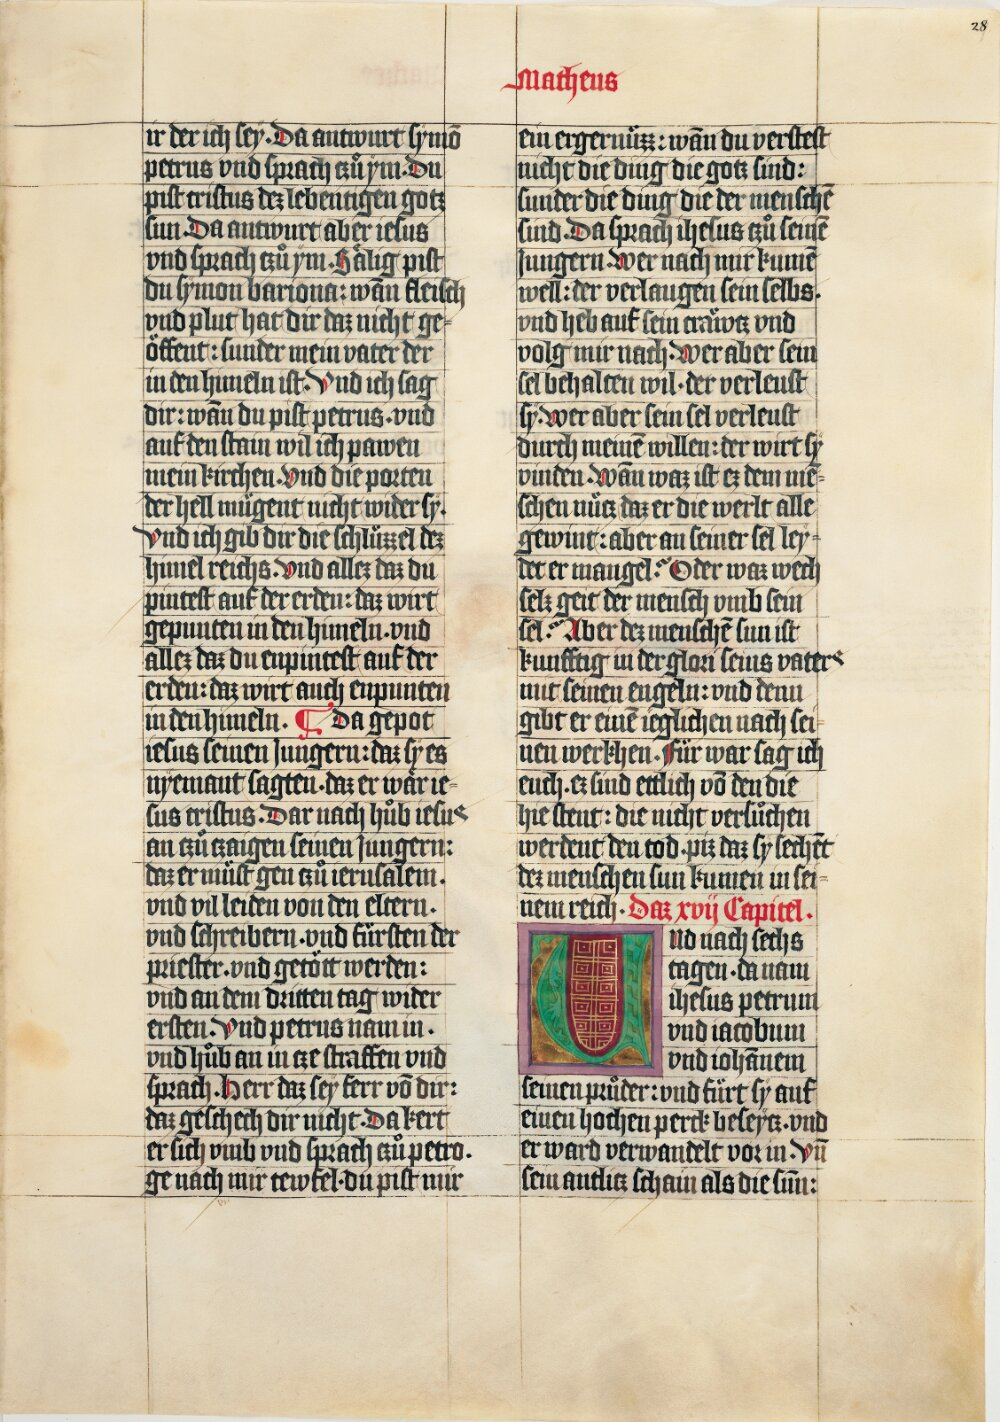 28
Matheus
ir der ich sey. Da antwurt symō
petrus vnd sprach czů ym. Du
pist cristus dez lebentigen gotz
sun. Da antwurt aber iesus
vnd sprach czů ym. Sälig pist
du symon bariona: wān fleisch
vnd plut hat dir daz nicht ge-
öffent: sunder mein vater der
in den himeln ist. Vnd ich sag
dir: wān du pist petrus. vnd
auf den stain wil ich pawen
mein kirchen. Vnd die porten
der hell mügent nicht wider sy.
Vnd ich gib dir die schlüzzel dez
himel reichs. Vnd allez daz du
pintest auf der erden: daz wirt
gepunten in den himeln. vnd
allez daz du enpintest auf der
erden: daz wirt auch enpunten
in den himeln. ¶ Da gepot
iesus seinen Jungern: daz sy es
nyemant sagten. daz er wär ie-
sus cristus. Dar nach hůb iesus
an czů czaigen seinen Jungern:
daz er müst gen czů ierusalem.
vnd vil leiden von den eltern.
vnd schreibern. vnd fürsten der
priester. vnd getött werden:
vnd an dem dritten tag wider
ersten. Vnd petrus nam in.
vnd hůb an in cze straffen vnd
sprach. Herr daz sey ferr vō dir:
daz geschech dir nicht. Da kert
er sich vmb vnd sprach czů petro.
ge nach mir tewfel. du pist mir
ein ergernüzz: wān du verstest
nicht die ding die gotz sind:
sunder die ding die der menschē
sind. Da sprach ihesus czů seinē
Jungern. Wer nach mir kumē
well: der verlaugen sein selbs.
vnd heb auf sein cräwtz vnd
volg mir nach. Wer aber sein
sel behalten wil. der verleust
sy. Wer aber sein sel verleust
durch meinē willen: der wirt sy
vinden. Wān waz ist ez dem mē-
schen nücz daz er die werlt alle
gewint: aber an seiner sel ley-
det er mangel? Oder waz wech
selz geit der mensch vmb sein
sel? Aber dez menschē sun ist
kunfftig in der glori seins vaters
mit seinen engeln: vnd denn
gibt er einē ieglichen nach sei-
nen werkhen. Für war sag ich
euch. ez sind ettlich vō den die
hie stent: die nicht versůchen
werdent den tod. piz daz sy sechēt
dez menschen sun kumen in sei-
nem reich. Daz xvij Capitel.
Vnd nach sechs
tagen. da nam
ihesus petrum
vnd iacobum
vnd iohānem
seinen průder: vnd fürt sy auf
einen hochen perck beseycz. vnd
er ward verwandelt vor in. Vn̄
sein antlicz schain als die sūn: